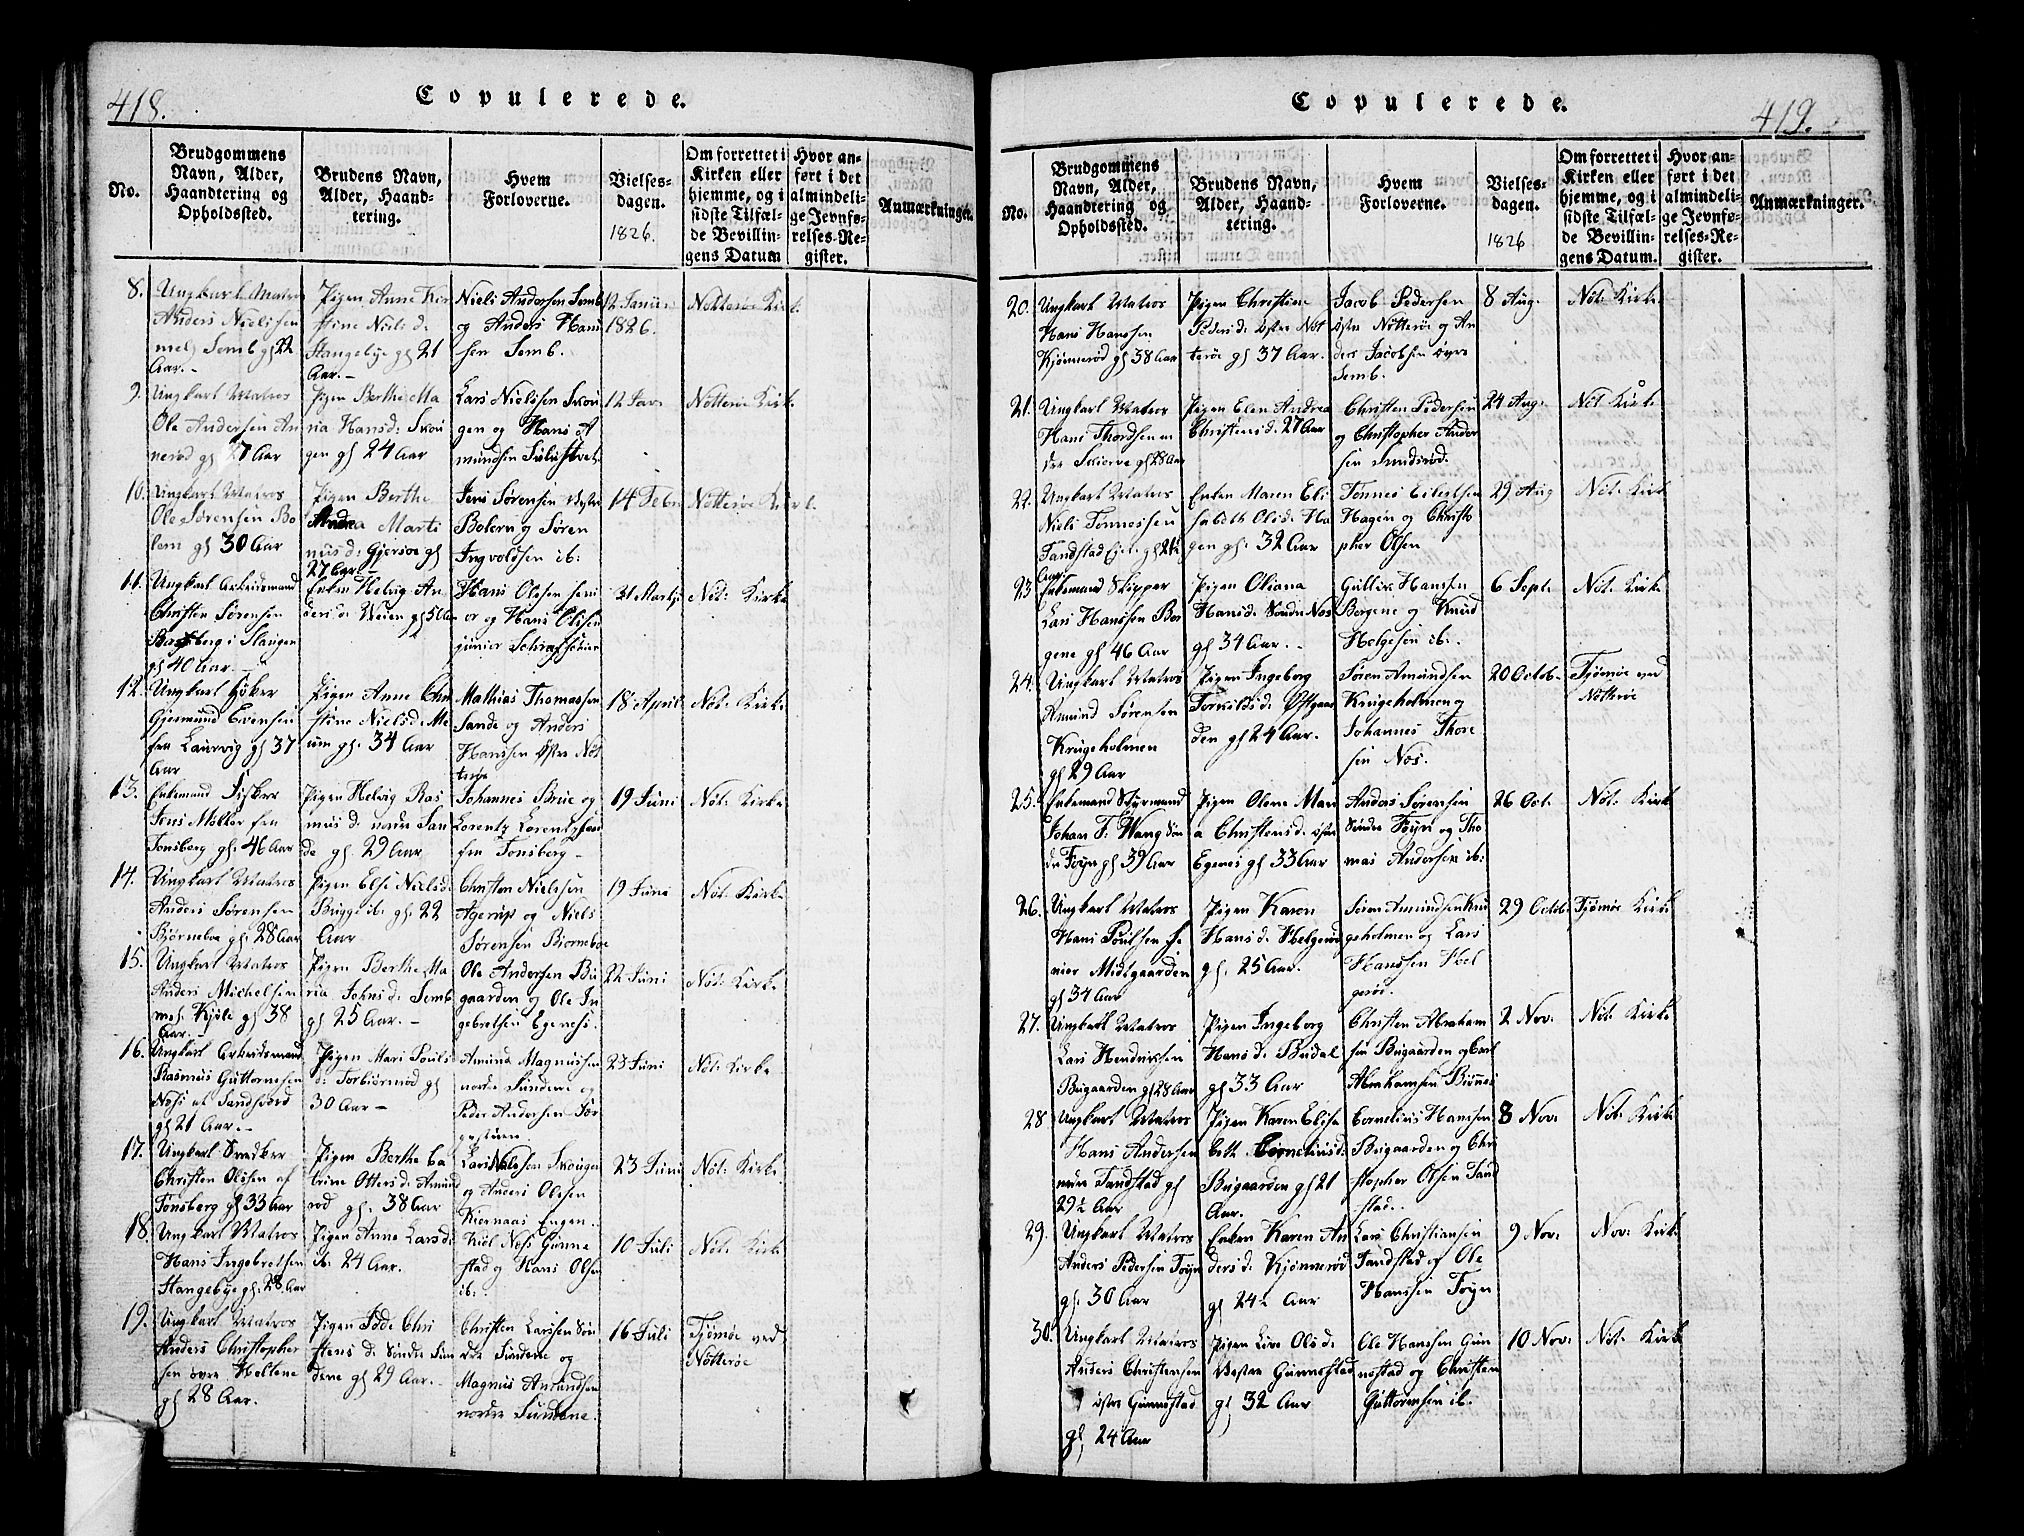 418.
Copulerede.
No.
Brudgommens
Navn, Alder,
Haandtering og
Opholdssted.
Brudens Navn,
Alder, Haand-
tering.
Hvem
Forloverne.
Vielses-
dagen.
1826.
Om forrettet i
Kirken eller
hjemme, og i
sidste Tilfæl-
de Bevillin-
gens Datum
Hvor an-
ført i det
almindeli-
ge Jevnfø-
relses-Re-
gister.
Anmærkninger.
8.
Ungkarl Matros
Anders Nielsen
Semb gl 22
Aar. -
Pigen Anne Kir
stine Niels d.
Stangebye gl 21
Aar. -
Niels Andersen Semb
og Anders Hans
sen Semb.
12 Januari
1826.
Nötteröe Kirk.
9.
Ungkarl Matros
Ole Andersen An
neröd gl 27 Aar
Pigen Berthe Ma
ria Hansd: Skou
gen gl 24 Aar
Lars Nielssen Skou
gen og Hans A
mundsen
12 Jan
Nötteröe Kirk.
10.
Ungkarl Matros
Ole Sørensen Bo
lern gl 30 Aar
Pigen Berthe
Andrea Marti
nusd: Gjersöe gl
27 Aar -
Jens Sørensen Vestre
Bolern og Søren
Ingvoldsen ib:
14 Febr
Nötteröe Kirk
11.
Ungkarl Arbeidsmand
Christen Sørensen
Basberg i Slangen
gl 40 Aar. -
Enken Helvig An
dersd: gl 50 Aar
Hans Olesen seni
or og Hans Olsen
junior
31 Martii
Nöt: Kirke
12.
Ungkarl Höker
Gjermund Evensen
fra Laurvig gl 37
Aar
Pigen Anne Chri
stine Nielsd: Me
um gl. 34 Aar
Mathias Thomassen
Sande og Anders
Hanssen østre Nöt
teröe
18 April
Nöt: Kirke
13.
Enkemand Fisker
Jens Möller fra
Tonsberg gl. 46 Aar
Pigen Helvig Ras
mus d. nordre San
de gl. 29 Aar
Johannes Brue og
Lorentz Lorentzsen
fra Tonsberg -
19 Juni
Nöt: Kirke
14.
Ungkarl Matros
Anders Sørensen
Bjørneboe gl: 28 Aar
Pigen Else Nielsd:
Brugge ib: gl 22
Aar
Christen Nielssen
Agerup og Niels
Sørensen Biorneboe
19 Juni
Nöt: Kirke
15.
Ungkarl Matros
Anders Michelsen
Kjöle gl 38
Aar. -
Pigen Berthe Ma
ria Johnsd: Semb
gl 25 Aar. -
Ole Andersen Bu
gaarden og Ole In
gebretsen Egenes.
22 Juni
Nöt: Kirke
16.
Ungkarl Arbeidsmand
Rasmus Guttormsen
Næss af Sandhered
gl 21 Aar. -
Pigen Mari Pouls
d: Torbiørnröd gl
30 Aar -
Amund Magnussen
nordre Sundene og
Peder Andersen
23 Juni
Nöt: Kirke
17.
Ungkarl Snedker
Christen Olssen af
Tonsberg gl 33 Aar
Pigen Berthe Ca
trine Ottersd: Amund
röd gl. 38 Aar
Lars Nielssen Skougen
og Anders Olesen
Kiernaas Engen.
23 Juni
Nöt: Kirke
18.
Ungkarl Matros
Hans Ingebretsen
Stangebye gl: 28 Aar
Pigen Anne Larsd:
ib: 24 Aar.
Kiöl Næss Gunne
stad og Hans Olsen
ib:
10 Juli
Nöt: Kirke
19.
Ungkarl Matros
Anders Christopher
sen øvre Heltene
gl 28 Aar.
Pigen Jode Chri
stens d: Søndre Sun
dene gl 29 Aar. -
Christen Larssen Søn
dre Sundene og
Magnus Amundsen
nordre Sundene.
16 Juli
Tjömöe ved
Nötteröe
419.
Copulerede.
No.
Brudgommens
Navn, Alder,
Haandtering og
Opholdssted.
Brudens Navn,
Alder, Haand-
tering.
Hvem
Forloverne.
Vielses-
dagen.
1826
Om forrettet i
Kirken eller
hjemme, og i
sidste Tilfæl-
de Bevillin-
gens Datum.
Hvor an-
ført i det
almindeli-
ge Jevnfø-
relses-Re-
gister.
Anmærkninger.
20.
Ungkarl Matros
Hans Hanssen
Kjönneröd gl 38 Aar
Pigen Christine
Peders d: østre Nöt
teröe gl 37 Aar.
Jacob Pedersen
østre Nötteröe og An
ders Jacobsen øvre
Semb.
8 Aug.
Nöt: Kirke
21.
Ungkarl Matros
Hans Thordsen ne
dre Skierve gl 28 Aar
Pigen Elen Andrea
Christensd. 27 Aar
Christen Pedersen
og Christopher Ander
sen Sunderöd.
24 Aug.
Nöt: Kirke
22.
Ungkarl Matros
Niels Tonnessen
Tandstad gl 24½
Aar
Enken Maren Eli
sabeth Olsd: Ha
gen gl. 32 Aar
Tonnes Eilertsen
Hagen og Christo
pher Olsen
29 Aug
Nöt: Kirk
23
Enkemand Skipper
Lars Hanssen Bor
gene gl 46 Aar
Pigen Oliana
Hansd: Søndre Næs
gl 34 Aar. -
Gulliv Hanssen
Borgene og Knud
Helgesen ib: -
6 Septr
Nöt: Kirke
24.
Ungkarl Matros
Amund Sørensen
Krugeholmen
gl 29 Aar
Pigen Ingeborg
Torkildsd: Østgaar
den gl 24 Aar.
Søren Amundsen
Krugeholmen og
Johannes Thore
sen Næs.
20 Octob.
Tjömöe ved
Nötteröe
25.
Enkemand Styrmand
Johan F: Wang Søn
dre Foyn gl 39 Aar
Pigen Olene Mari
a Christensd: østre
Egenes gl 33 Aar
Anders Sørensen
Søndre Foyn og Tho
mas Andersen ib:
26 Oct.
Nöt: Kirke
26.
Ungkarl Matros
Hans Poulsen Je
nier Midtgaarden
gl 34 Aar
Pigen Karen
Hans d: Helgeröd
gl. 25 Aar.
Søren Amundsen Kru
geholmen og Lars
Hanssen Hel
geröd.
29 Octob:
Tjömöe Kirke
27.
Ungkarl Matros
Lars Hendricksen
Bugaarden gl 28 Aar
Pigen Ingeborg
Hans d: Budal
gl 33 Aar
Christen Abraham
sen Bugaarden og Carl
Abrahamsen Biönnes
2 Nov.
Nöt: Kirke
28
Ungkarl Matros
Hans Andersen
nedre Tandstad gl
29½ Aar
Pigen Karen Elisa
beth Corneliusd:
Bugaarden gl 21
Aar.
Cornelius Hanssen
Bugaarden og Chri
stopher Olsen Tand
stad.
8 Nov:
Nöt: Kirke
29.
Ungkarl Matros
Anders Pedersen Foyn
gl. 30 Aar
Enken Karen An
dersd: Kjönneröd
gl 24½ Aar
Lars Christiansen
Tandstad og Ole
Hanssen Foyn
9 Nov:
Nov: Kirke
30.
Ungkarl Matros
Anders Christensen
østre Gunnestad
gl 24 Aar
Pigen Live Ols d:
Vestre Gunnestad
gl 32 Aar
Ole Hanssen Gun
nestad og Christen
Guttormsen ib.
10 Nov:
Nöt: Kirke